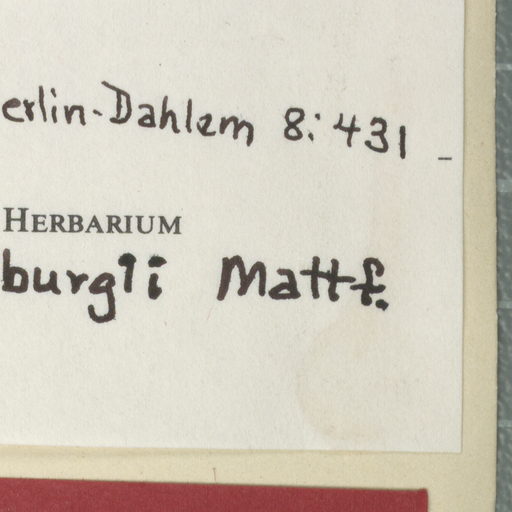 erlin-Dahlem 8:431-
HERBARIUM
burgii Mattf.